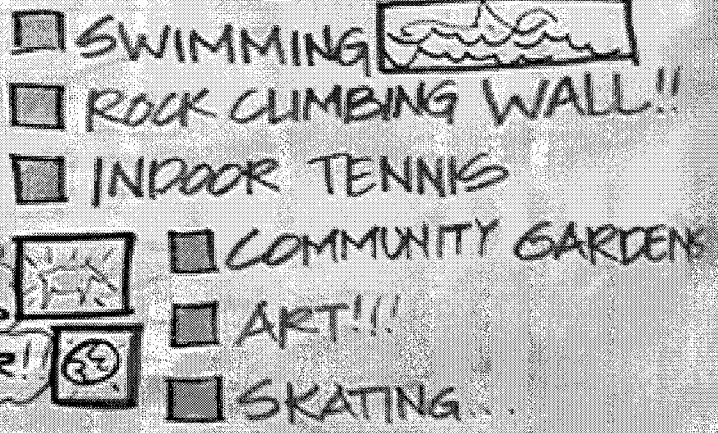 SWIMMING
ROCK CLIMBING WALL!!
INDOOR TENNIS
COMMUNITY GARDENS
ART!!!
SKATING...